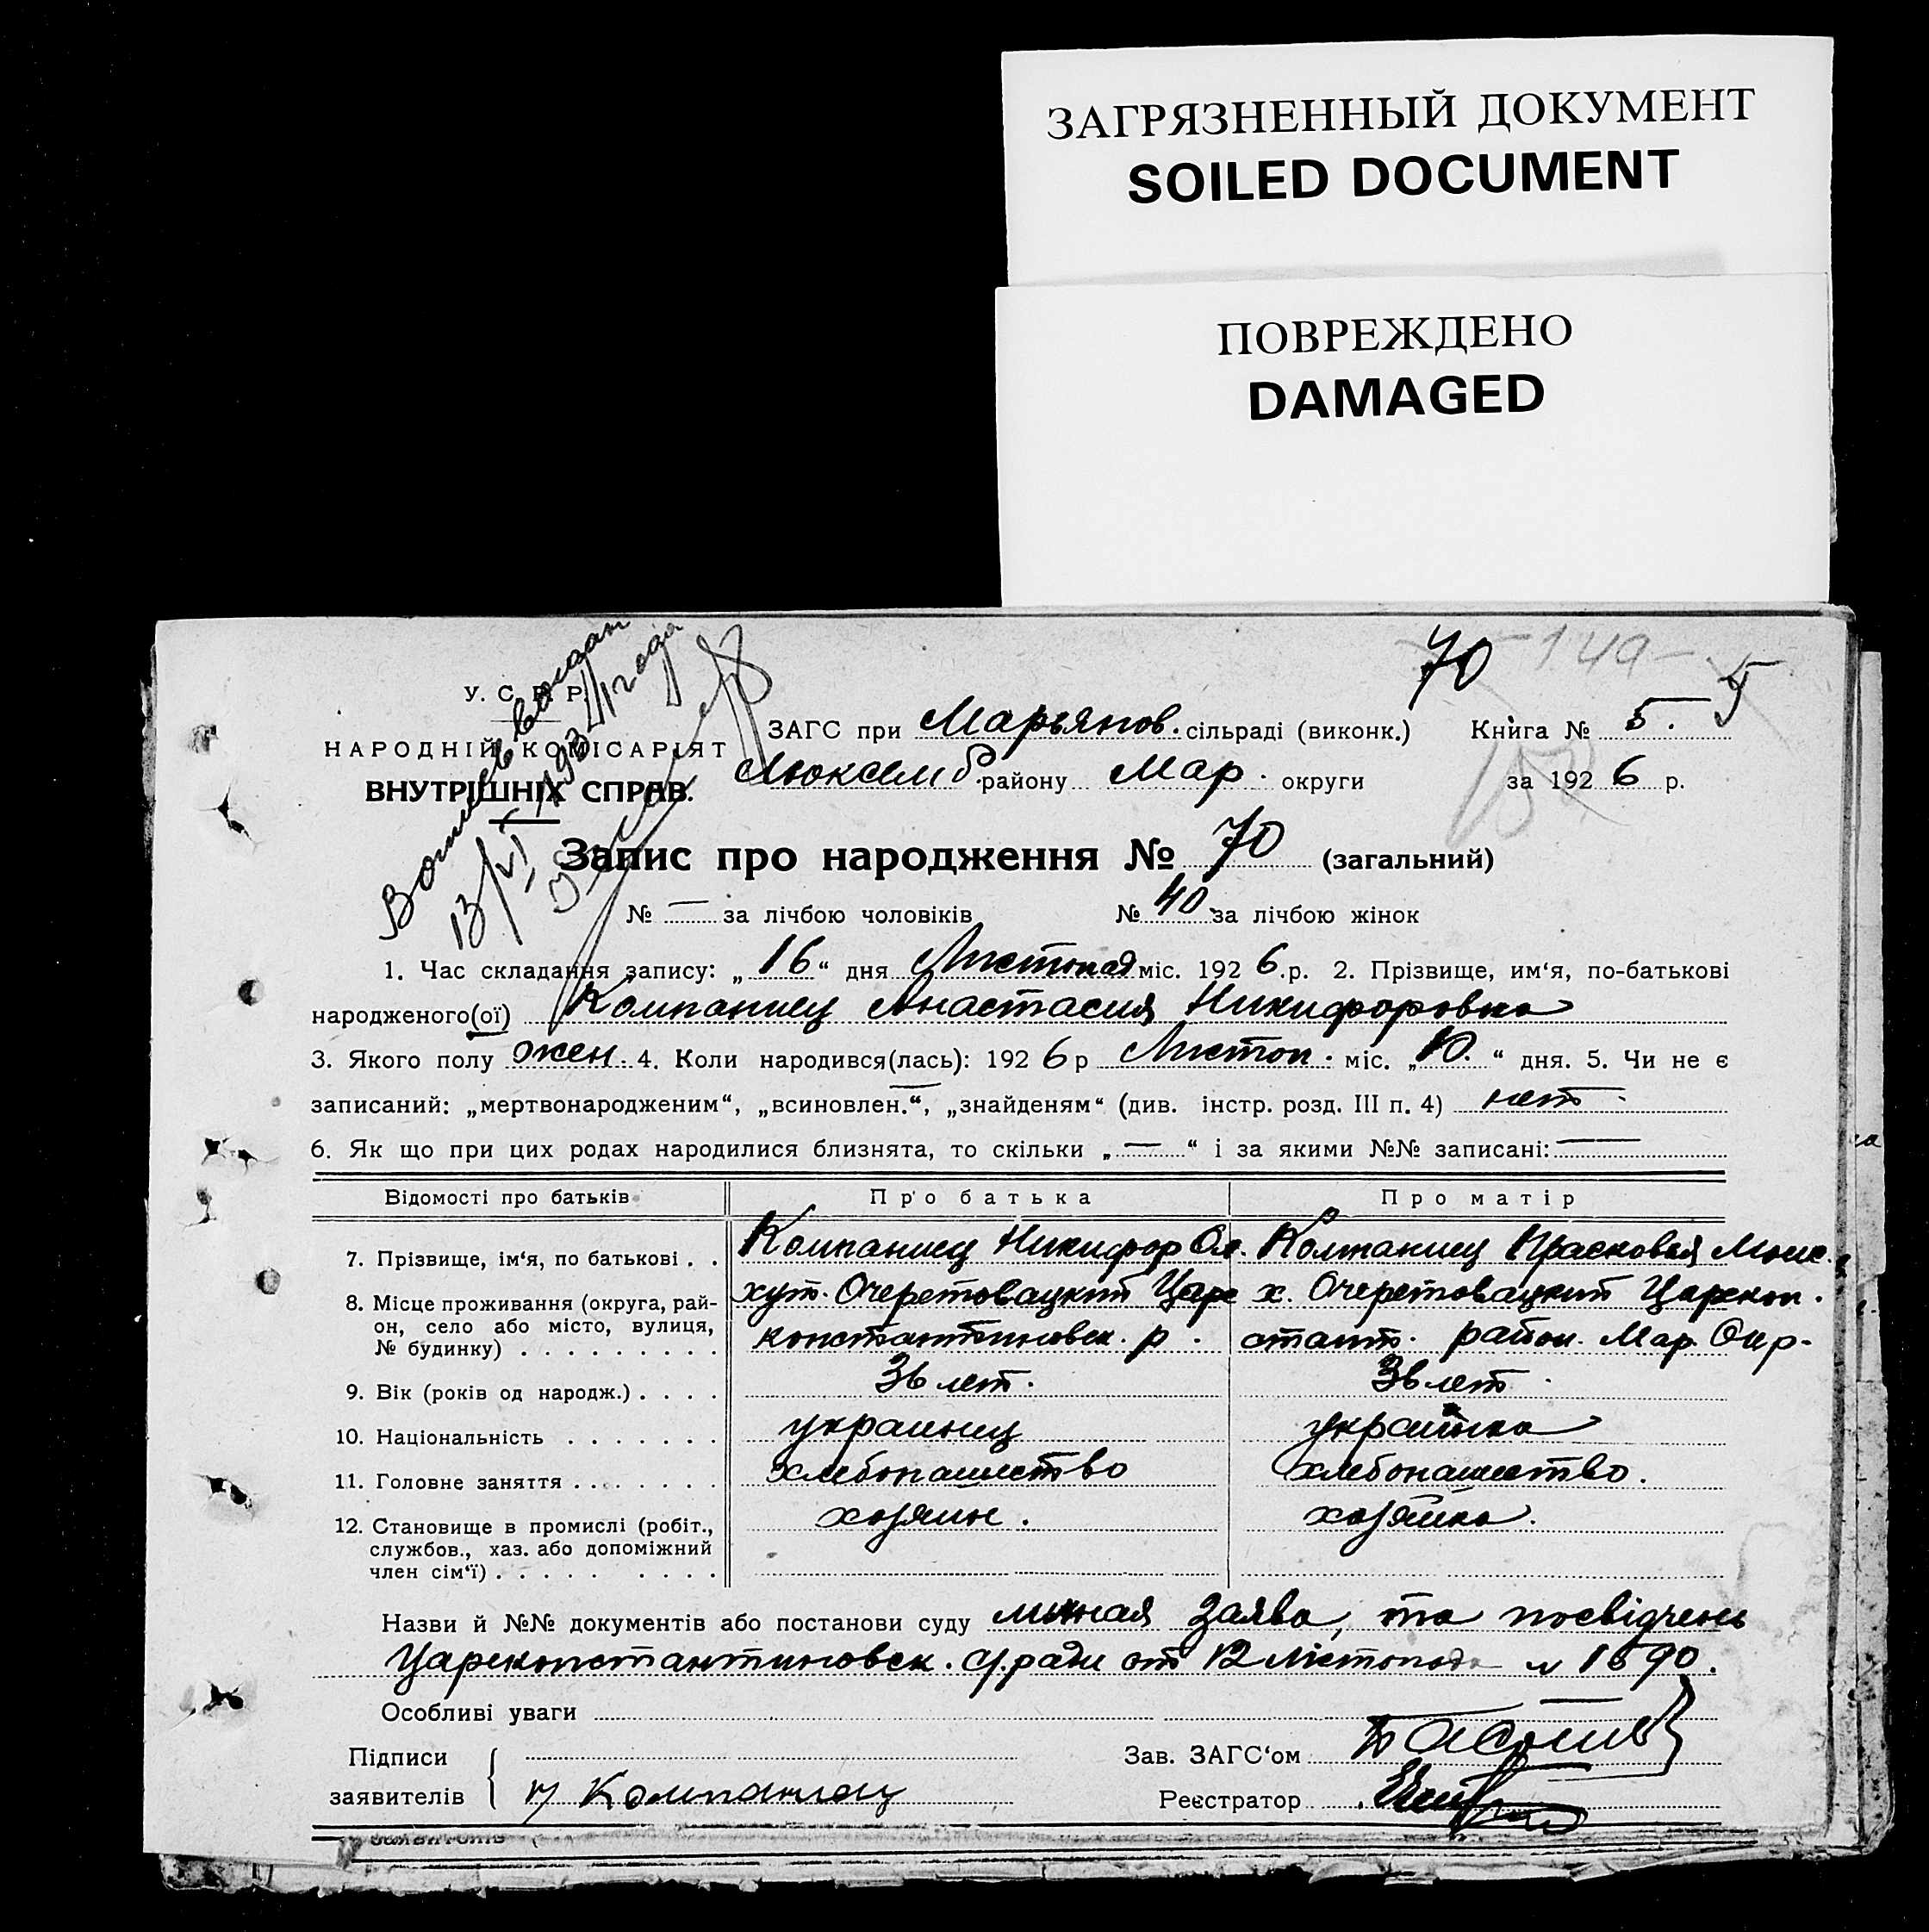 ЗАГРЯЗНЕННЫЙ ДОКУМЕНТ
SOILED DOCUMENT
ПОВРЕЖДЕНО
DAMAGED
70 149 5
У. С. Р. Р.
НАРОДНІЙ КОМІСАРІЯТ
ВНУТРІШНІХ СПРАВ.
13/VI 193 года
ЗАГС при Марьянов. сільраді (виконк.) Книга № 5.
Люксемб. району Мар. округи за 1926 р.
150
Запис про народження № 70 (загальний)
№ — за лічбою чоловіків № 40 за лічбою жінок
1. Час складання запису: „16“ дня Листопад міс. 1926.р. 2. Прізвище, им‘я, по-батькові
народженого(ої) Компаниец Анастасия Никифоровна
3. Якого полу жен. 4. Коли народився(лась): 1926 р Листоп. міс. „10.“ дня. 5. Чи не є
записаний: „мертвонародженим“, „всиновлен.“, „знайденям“ (див. інстр. розд. III п. 4) нет
6. Як що при цих родах народилися близнята, то скільки „—“ і за якими №№ записані: —
Відомості про батьків Про батька Про матір
7. Прізвище, ім‘я, по батькові . . Компаниец Никифор Ол. Компаниец Прасковья Моис.
8. Місце проживання (округа, рай- хут. Очеретовацкий Царе х. Очеретовацкий Царекон.
он, село або місто, вулиця, константиновск. р. стант. район. Мар. Окр.
№ будинку) . . . . . . . . .
9. Вік (років од народж.) . . . . 36 лет. 36 лет.
10. Національність . . . . . . . украинец украинка
11. Головне заняття . . . . . . . хлебопашество хлебопашество.
12. Становище в промислі (робіт., хозяин. хозяйка.
службов., хаз. або допоміжний
член сім‘ї) . . . . . . . . .
Назви й №№ документів або постанови суду личная заява, та посвідчень
Цареконстантиновск. с/ради от 12 лістопада № 1590.
Особливі уваги
Підписи Зав. ЗАГС‘ом
заявителів Н Компаниец Реєстратор
заявителів